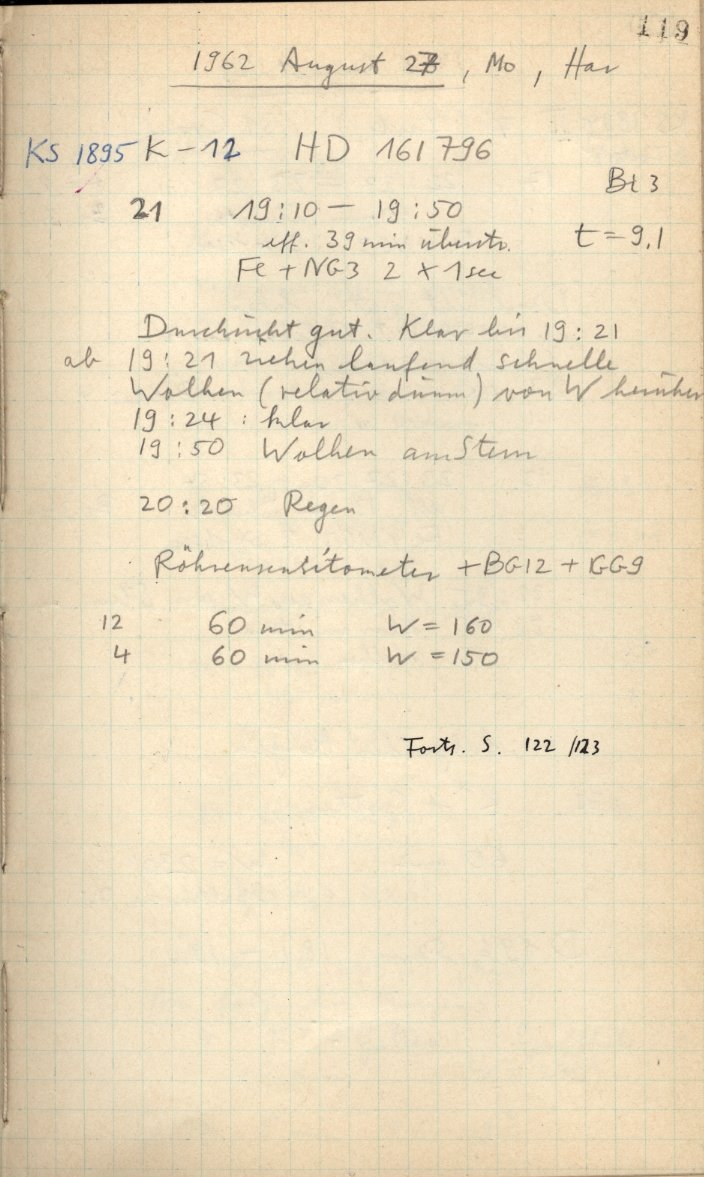 119
1962 August 27, Mo, Har
KS 1895 K-12 HD 161796
Bl 3
21 19:10 - 19:50
eff. 39 min überstr. t = 9,1
Fe + NG3 2 x 1 sec
Durchsicht gut. Klar bis 19:21
ab 19:21 ziehen laufend schnelle
Wolken (relativ dünn) von W herüber
19:24 : klar
19:50 Wolken am Stern
20:20 Regen
Röhrensensitometer + BG12 + GG9
12 60 min W = 160
4 60 min W = 150
Forts. S. 122/123